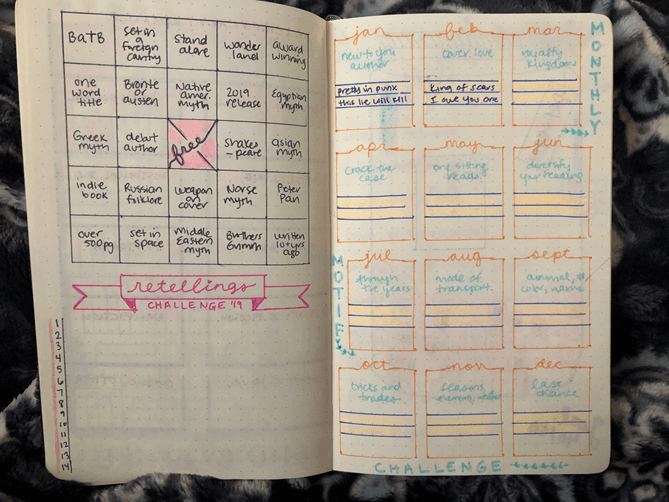 BATB
set in a foreign country
stand alone
wonder land
award winning
one word title
Bronte or austen
Native amer. myth
2019 release
Egyptian myth
Greek myth
debut author
free
shakes-peare
asian myth
indie book
Russian folklore
weapon on cover
Norse myth
Peter Pan
over 500pg
set in space
Middle Eastern myth
written 10+yrs ago
retellings
CHALLENGE '19
1
2
3
4
5
6
7
8
9
10
11
12
13
14
jan
new to you author
pretty in punx
this lie will kill
feb
cover love
King of scars
I owe you one
mar
royalty kingdom
MONTHLY
apr
crack the case
may
one sitting reads.
jun
diversify your reading
MOTIF
jul
through the years
aug
mode of transport.
sept
animal, color, name
oct
tricks and trades
nov
seasons,
dec
last chance
CHALLENGE